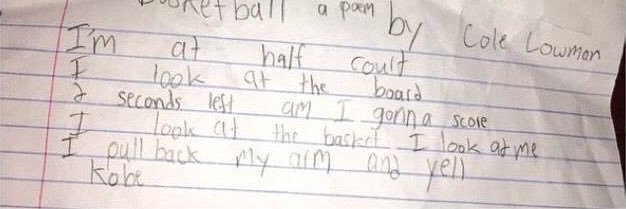 Basketball a poem by Cole Lowman
I'm at half coult
I look at the board
2 seconds left am I gonna score
I look at the basket I look at me
I pull back my arm and yell
Kobe